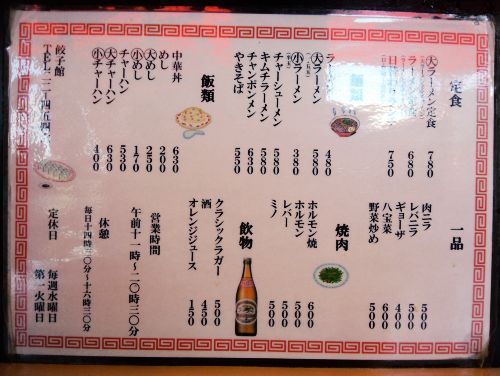 定食
(大)ラーメン定食 780
ラーメン定食 680
日 750
ラーメン 480
(大)ラーメン 580
(小)ラーメン 380
チャーシューメン 580
キムチラーメン 580
チャンポンメン 630
やきそば 550
飯類
中華丼 630
めし 200
(大)めし 250
(小)めし 170
チャーハン 530
(大)チャーハン 630
(小)チャーハン 400
餃子館
一品
肉ニラ 500
レバニラ 500
ギョーザ 400
八宝菜 600
野菜炒め 500
焼肉
ホルモン焼 600
ホルモン 500
レバー 500
ミノ 500
飲物
クラシックラガー 500
酒 450
オレンジジュース 150
営業時間
午前十一時〜二〇時三〇分
休憩
毎日十四時三〇分〜十六時三〇分
定休日
毎週水曜日
第一火曜日